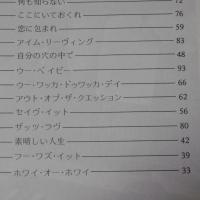 何も知らない 72
ここにいておくれ 76
恋に包まれ 59
アイム・リーヴィング 83
自分の穴の中で 48
ウー・ベイビー 93
ウー・ワッカ・ドゥワッカ・デイ 66
アウト・オブ・ザ・クエッション 62
セイヴ・イット 56
ザッツ・ラヴ 80
素晴しい人生 42
フー・ワズ・イット 39
ホワイ・オー・ホワイ 33